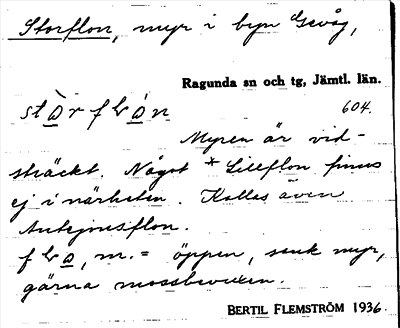 Storflon, myr i byn Gevåg,
Ragunda sn och tg, Jämtl. län.
604.
Myren är vid-
sträckt. Något *Lillflon finns
ej i närheten. Kallas även
Antejonsflon.
m. = öppen, sank myr,
gärna mossbevuxen.
BERTIL FLEMSTRÖM 1936.